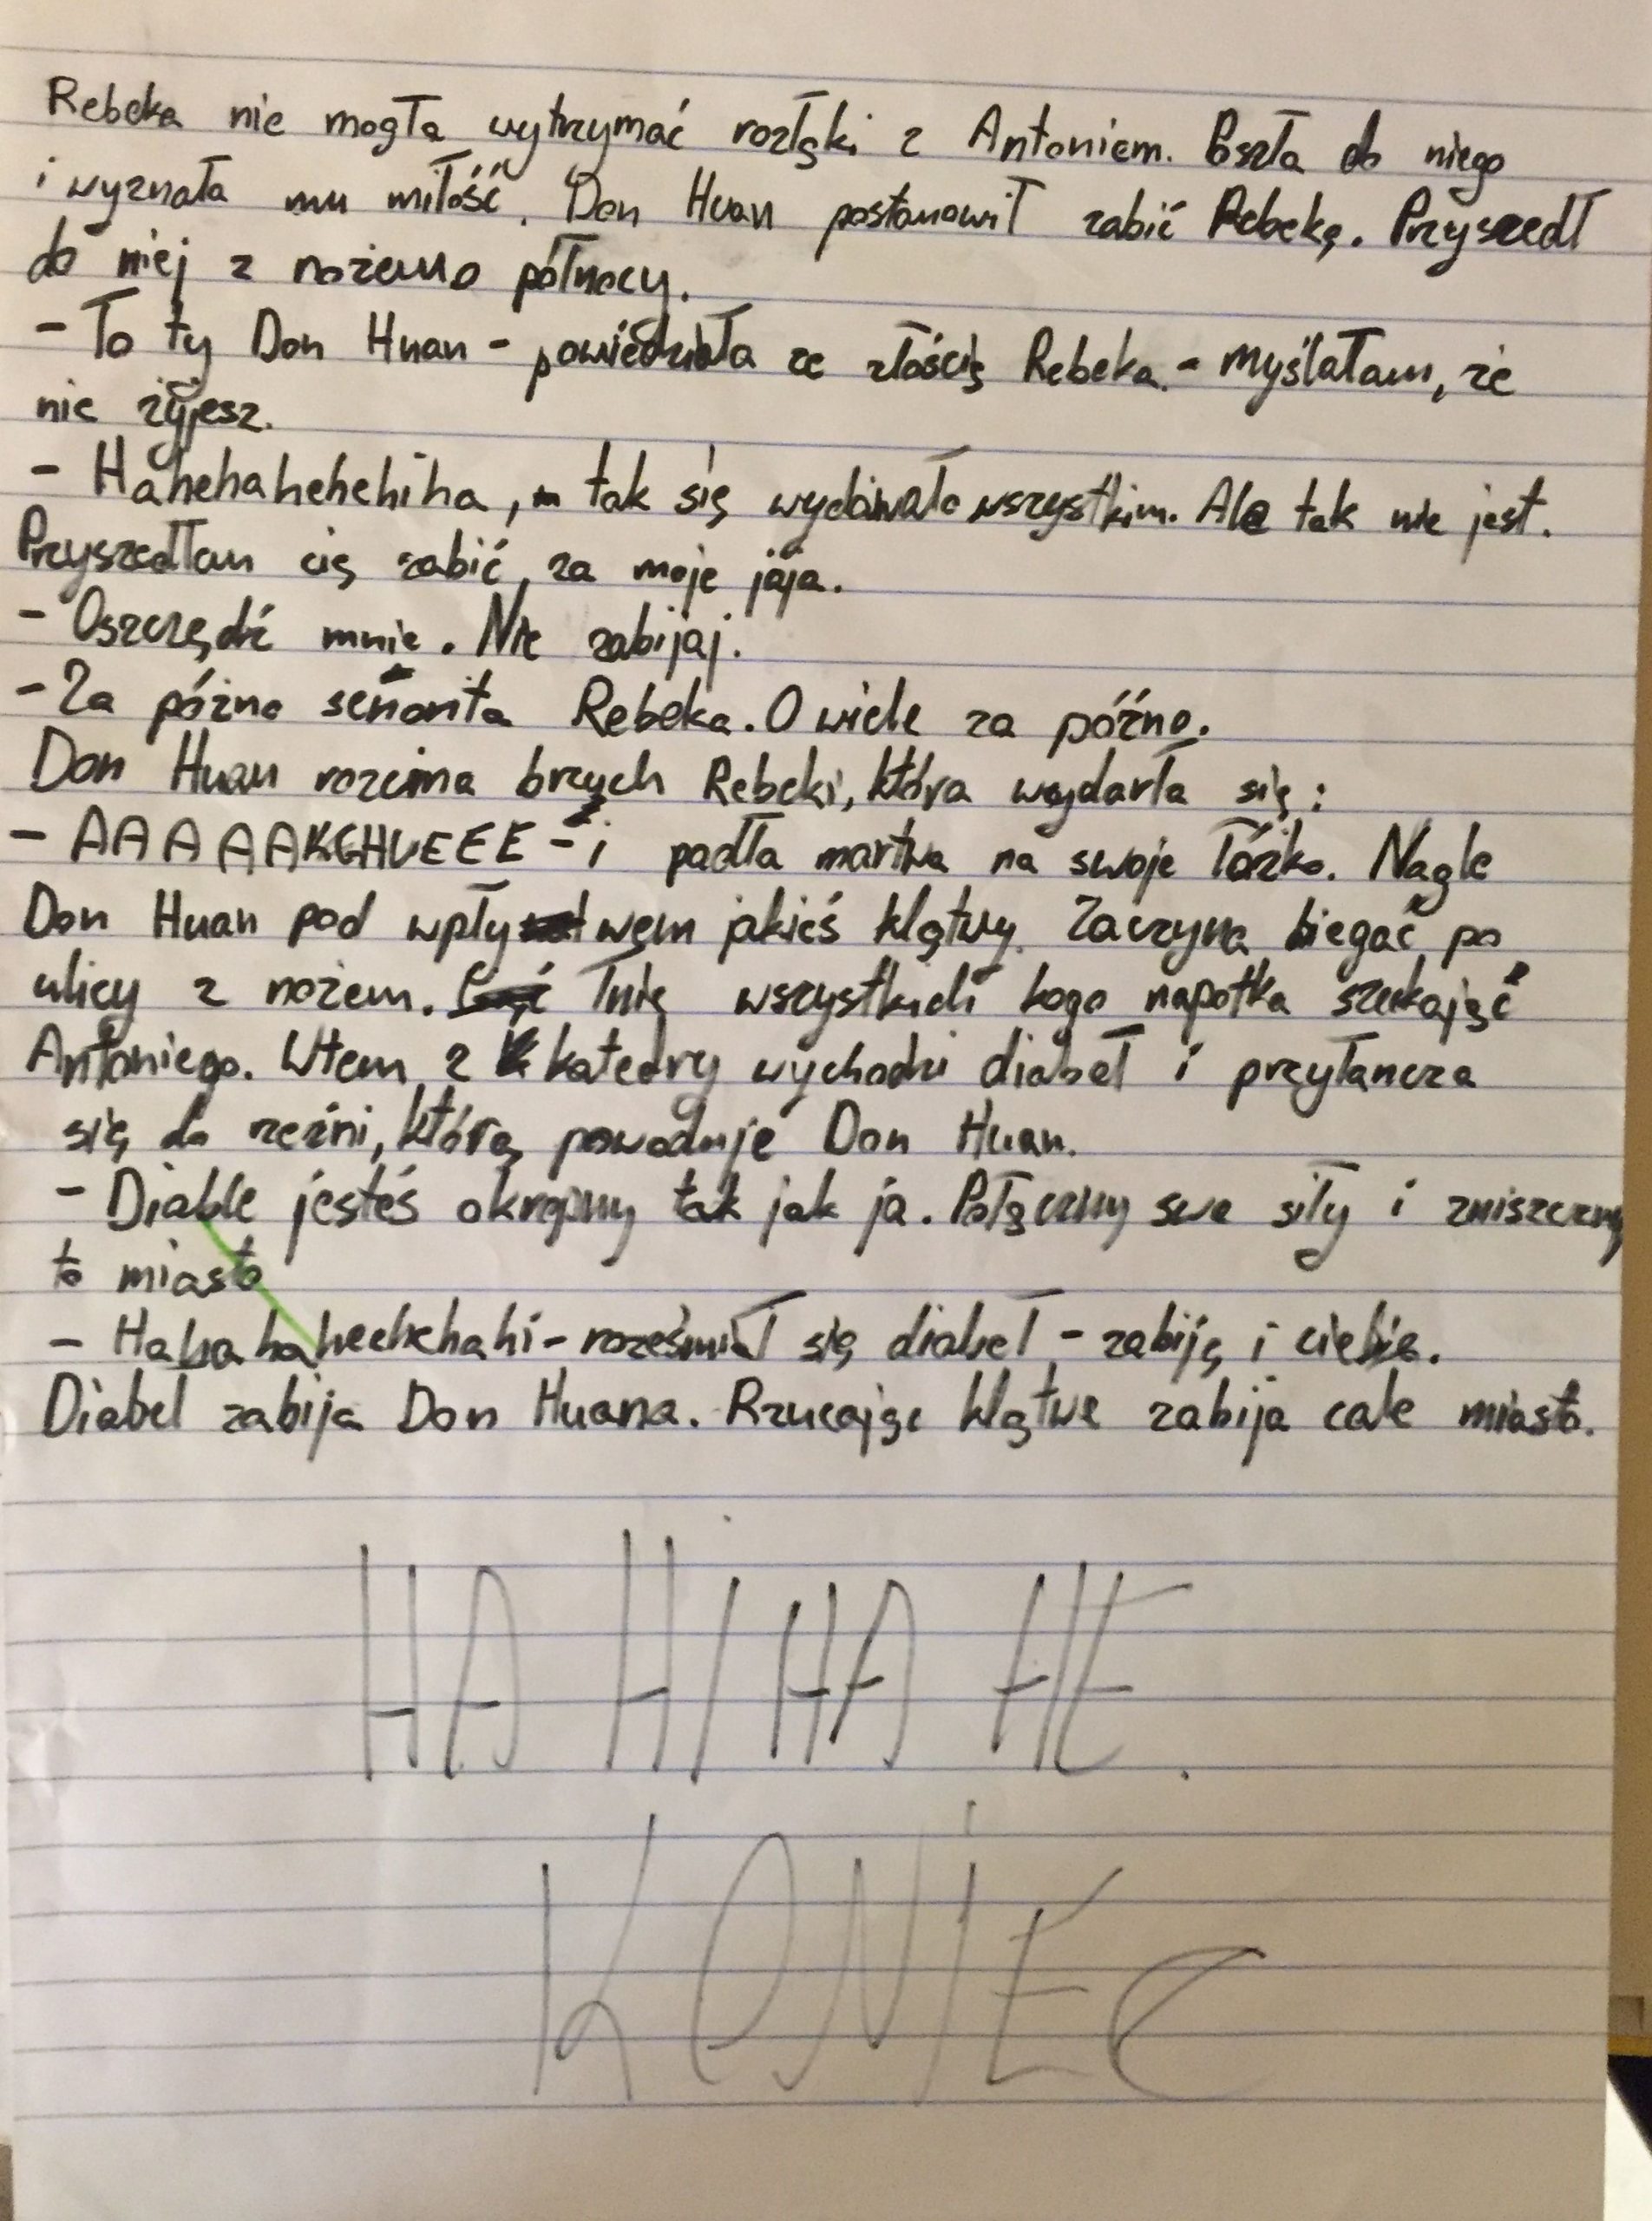 Rebeka nie mogła wytrzymać rozłąki z Antoniem. Poszła do niego
i wyznała mu miłość. Don Huan postanowił zabić Rebekę. Przyszedł
do niej z nożem o północy.
- To ty Don Huan - powiedziała ze złością Rebeka. - Myślałam, że
nie żyjesz.
- Hahehahehehiha, tak się wydawało wszystkim. Ale tak nie jest.
Przyszedłem cię zabić, za moje jaja.
- Oszczędź mnie. Nie zabijaj.
- Za późno señorita Rebeka. O wiele za późno.
Don Huan rozcina brzuch Rebeki, która wydarła się:
- AAAAAKGHUEEE - i padła martwa na swoje łóżko. Nagle
Don Huan pod wpływem jakiéś klątwy. Zaczyna biegać po
ulicy z nożem. Tnie wszystkich kogo napotka szukając
Antoniego. Wtem z katedry wychodzi diabeł i przyłancza
się do rzeźni, którą powoduje Don Huan.
- Diable jesteś okrojny tak jak ja. Połączmy swe siły i zniszczmy
to miasto
- Hahahahechehahi - roześmiał się diabeł - zabiję i ciebie.
Diabel zabija Don Huana. Rzucając klątwe zabija całe miasto.
HA HI HA HE.
KONIEC